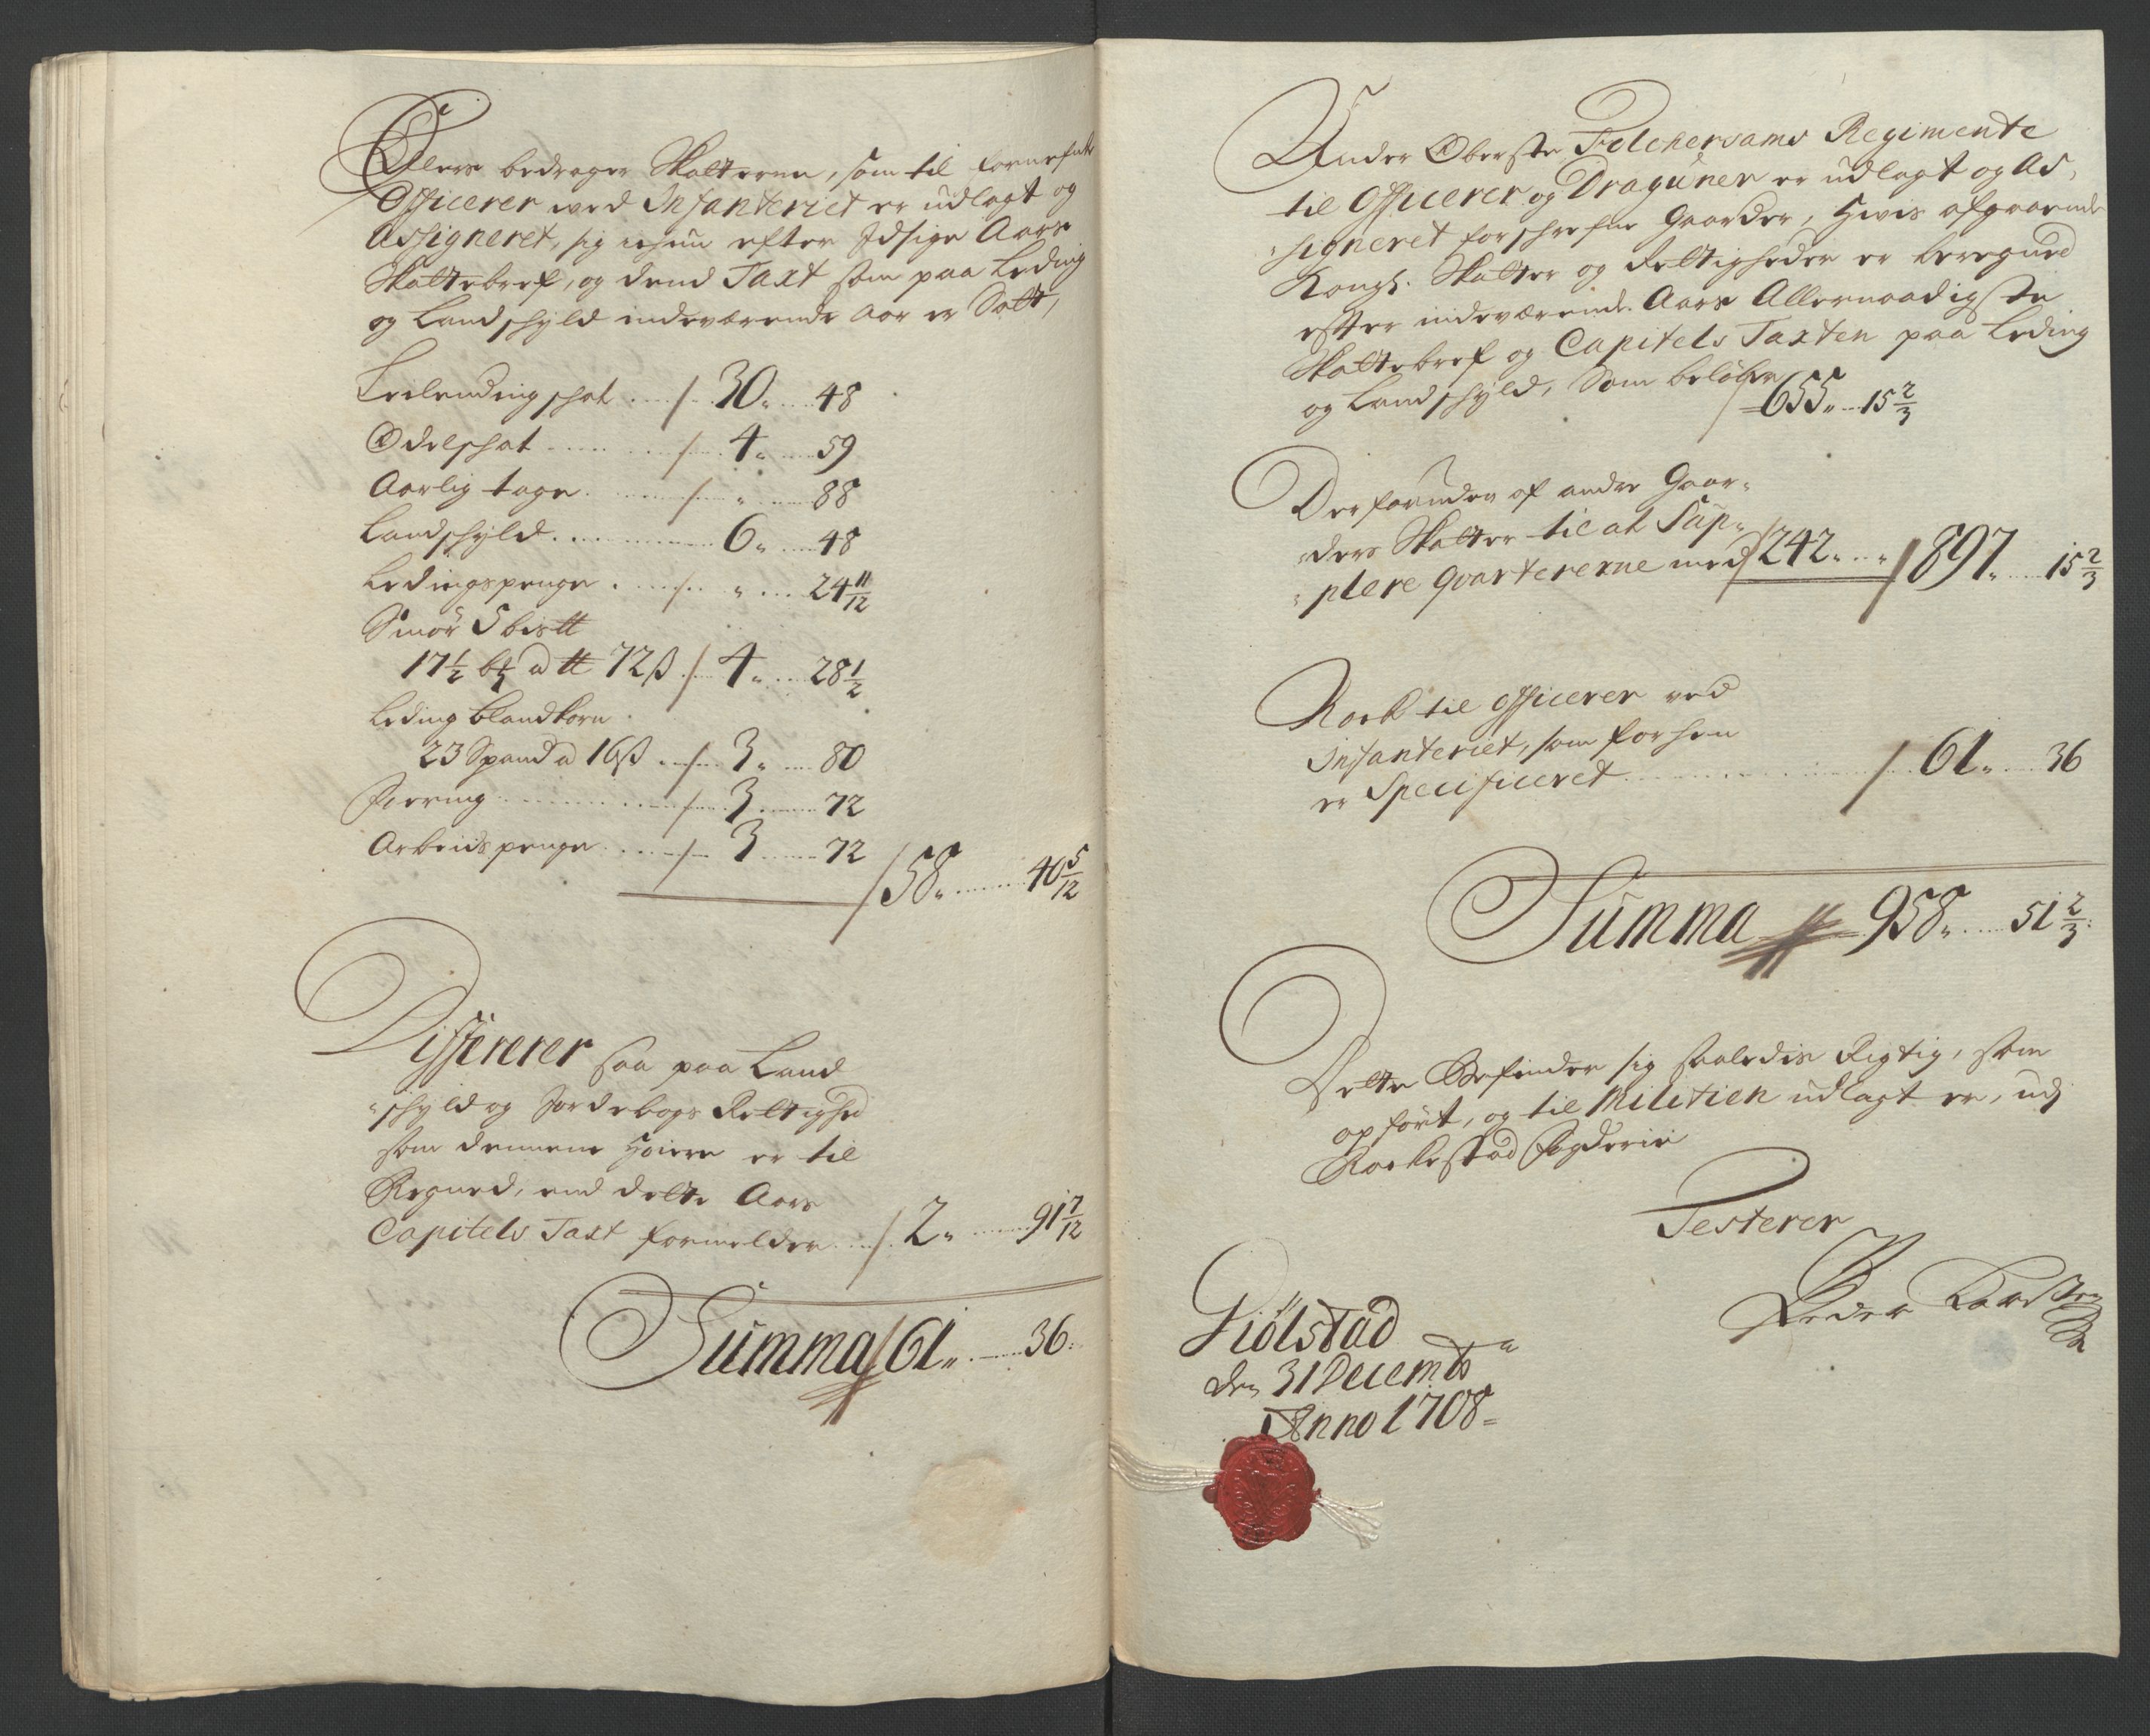 Ellers bedrager Skatterne, som til fornefnte
Officerer ved Infanteriet er udlagt og
Assigneret, sig ichun efter Idsige Aars
Skattebref, og dend Taxt som paa Leding
og Landschyld indeværende Aar er Satt,
Leilendingschat ..../. 30 „ .... 48
Odelschat ..../. 4 „ .... 59
Aarlig tage ..../. „ .... 88
Landschyld .... 6 „ .... 48
Ledingspenge ..../. „ .... 24 11/12
Smör 5 bis℔
17 1/2 ℔ a ℔ 72 ß / 4 „ .... 28 1/2
Leding blandkorn
23 Spand a 16 ß ..../. 3 „ .... 80
Foering ..../. 3 .... 72
Arbeidspenge ..../. 3 .... 72
/ 58 „ .... 40 5/12
Differerer saa paa Land
„schyld og Jordebogs Rettighed
som dennem høiere er til
Regned, end dette Aars
Capitels Taxt formelder ..../. 2 „ .... 91 7/12
Summa / 61 „ .... 36 :
Under Oberste Felchersams Regimente
til Officerer og Draguner er udlagt og As,
„signeret forschrefne Gaarder, Hvis afgaaende
Kongl. Skatter og Rettigheder er beregned
efter indeværende Aars Allernaadigste
Skattebref og Capitels Taxten paa Leding
og Landschyld, Som beløber
/ 655 „ .... 15 2/3
Derforuden af andre Gaar„
„ders Skatter til at Sup„
„plere Qvartererne med / 242 „ .. „ / 897 „ .... 15 2/3
Nock til officerer ved
Infanteriet, som forhen
er Specificeret .... / 61 „ .... 36
Summa // 958 „ .... 51 2/3 :
Dette Befindes sig saaledis Rigtig, som
opført, og til Militien udlagt er, udj
Rachestad fogderie
Testerer
Peder Karsten
Giölstad
den 31 Decembr
Anno 1708 =